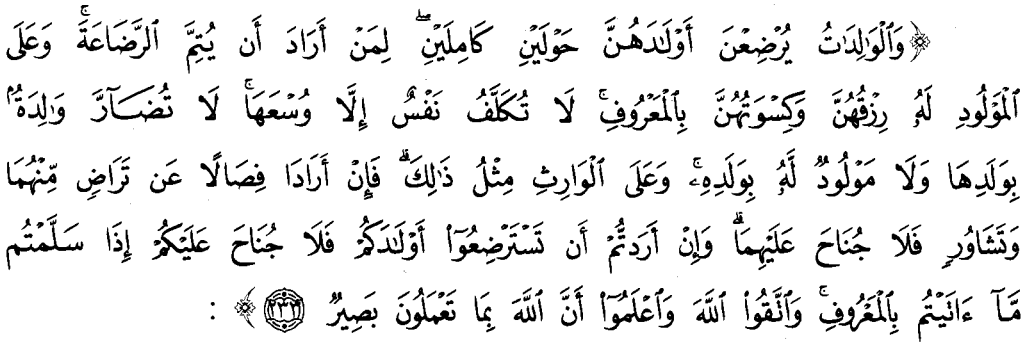 ﴿وَٱلْوَٰلِدَٰتُ يُرْضِعْنَ أَوْلَٰدَهُنَّ حَوْلَيْنِ كَامِلَيْنِ ۖ لِمَنْ أَرَادَ أَن يُتِمَّ ٱلرَّضَاعَةَ ۚ وَعَلَى
ٱلْمَوْلُودِ لَهُۥ رِزْقُهُنَّ وَكِسْوَتُهُنَّ بِٱلْمَعْرُوفِ ۚ لَا تُكَلَّفُ نَفْسٌ إِلَّا وُسْعَهَا ۚ لَا تُضَآرَّ وَٰلِدَةٌۢ
بِوَلَدِهَا وَلَا مَوْلُودٌ لَّهُۥ بِوَلَدِهِۦ ۚ وَعَلَى ٱلْوَارِثِ مِثْلُ ذَٰلِكَ ۗ فَإِنْ أَرَادَا فِصَالًا عَن تَرَاضٍ مِّنْهُمَا
وَتَشَاوُرٍ فَلَا جُنَاحَ عَلَيْهِمَا ۗ وَإِنْ أَرَدتُّمْ أَن تَسْتَرْضِعُوٓا۟ أَوْلَٰدَكُمْ فَلَا جُنَاحَ عَلَيْكُمْ إِذَا سَلَّمْتُم
مَّآ ءَاتَيْتُم بِٱلْمَعْرُوفِ ۗ وَٱتَّقُوا۟ ٱللَّهَ وَٱعْلَمُوٓا۟ أَنَّ ٱللَّهَ بِمَا تَعْمَلُونَ بَصِيرٌ ٢٣٣﴾ :